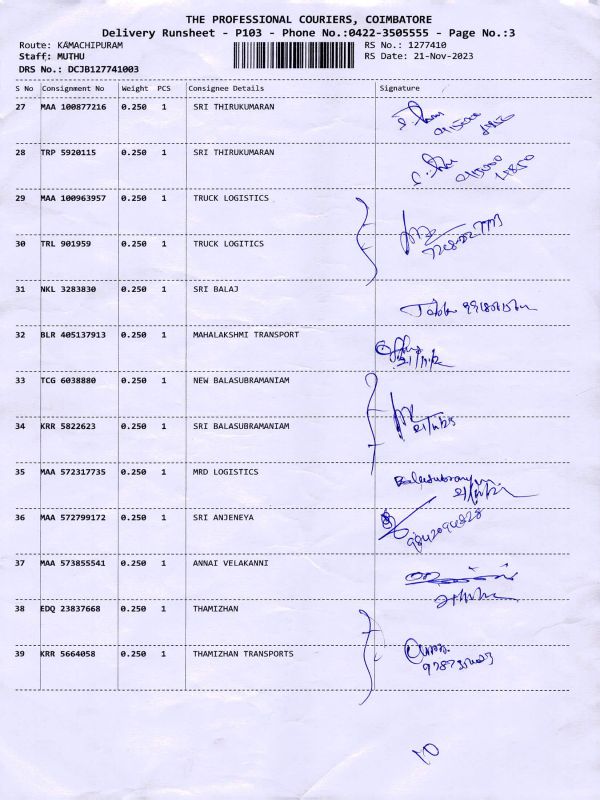 THE PROFESSIONAL COURIERS, COIMBATORE
Delivery Runsheet - P103 - Phone No.:0422-3505555 - Page No.:3
Route: KAMACHIPURAM RS No.: 1277410
Staff: MUTHU RS Date: 21-Nov-2023
DRS No.: DCJB127741003
S No Consignment No Weight PCS Consignee Details Signature
27 MAA 100877216 0.250 1 SRI THIRUKUMARAN
28 TRP 5920115 0.250 1 SRI THIRUKUMARAN
29 MAA 100963957 0.250 1 TRUCK LOGISTICS
30 TRL 901959 0.250 1 TRUCK LOGITICS
31 NKL 3283830 0.250 1 SRI BALAJ
32 BLR 405137913 0.250 1 MAHALAKSHMI TRANSPORT
33 TCG 6038880 0.250 1 NEW BALASUBRAMANIAM
34 KRR 5822623 0.250 1 SRI BALASUBRAMANIAM
21/11/23
35 MAA 572317735 0.250 1 MRD LOGISTICS
36 MAA 572799172 0.250 1 SRI ANJENEYA
37 MAA 573855541 0.250 1 ANNAI VELAKANNI
38 EDQ 23837668 0.250 1 THAMIZHAN
39 KRR 5664058 0.250 1 THAMIZHAN TRANSPORTS